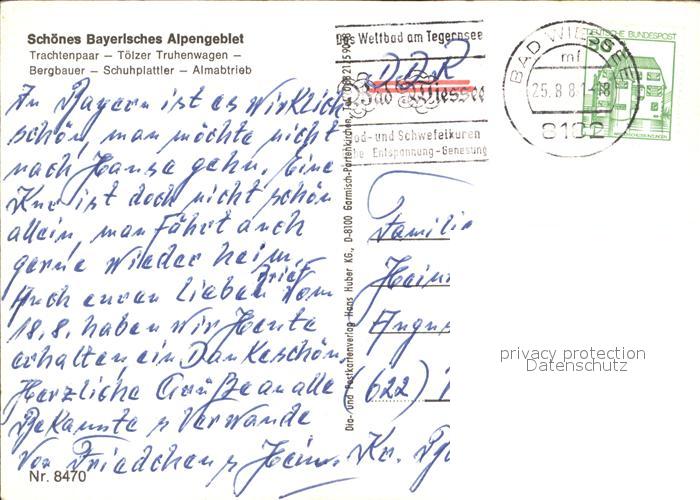 Schönes Bayerisches Alpengebiet
Trachtenpaar — Tölzer Truhenwagen —
Bergbauer — Schuhplattler — Almabtrieb
In Bayern ist es wirklich
schön, man möchte nicht
nach Hause gehn. Eine
Kur ist doch nicht schön
allein, man fährt auch
gerne wieder heim.
Auch euren lieben Brief vom
18.8. haben wir Heute
erhalten, ein Dankeschön
Herzliche Grüße an alle
Bekannte u Verwande
Von Friedchen u Heinz
Nr. 8470
Dia- und Postkartenverlag Hans Huber KG., D-8100 Garmisch-Partenkirchen
Das Weltbad am Tegernsee
Bad Wiessee
Jod- und Schwefelkuren
Entspannung - Genesung
DDR
BAD WIESSEE
mf
25.8.81-18
8182
DEUTSCHE BUNDESPOST
Familie
(622)
Kr.
privacy protection
Datenschutz